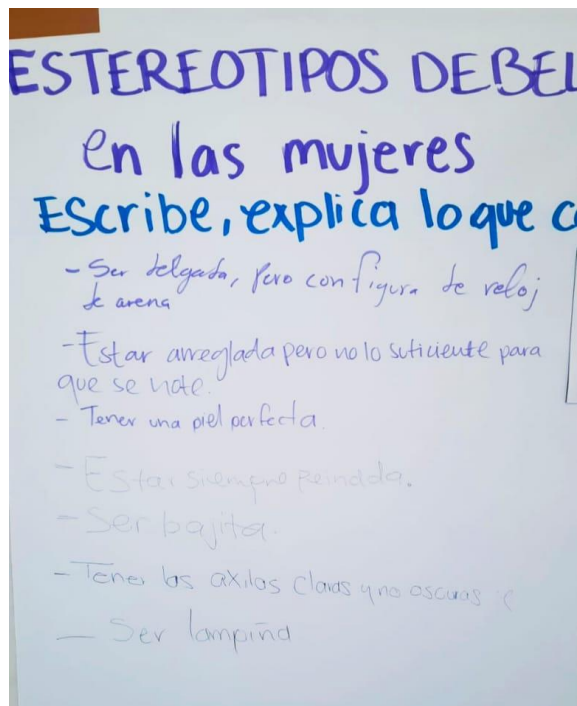 ESTEREOTIPOS DE BEL
en las mujeres
Escribe, explica lo que c
- Ser delgada, pero con figura de reloj
de arena
- Estar arreglada pero no lo suficiente para
que se note.
- Tener una piel perfecta.
- Estar siempre peinada.
- Ser bajita.
- Tener las axilas claras y no oscuras
- Ser lampiña